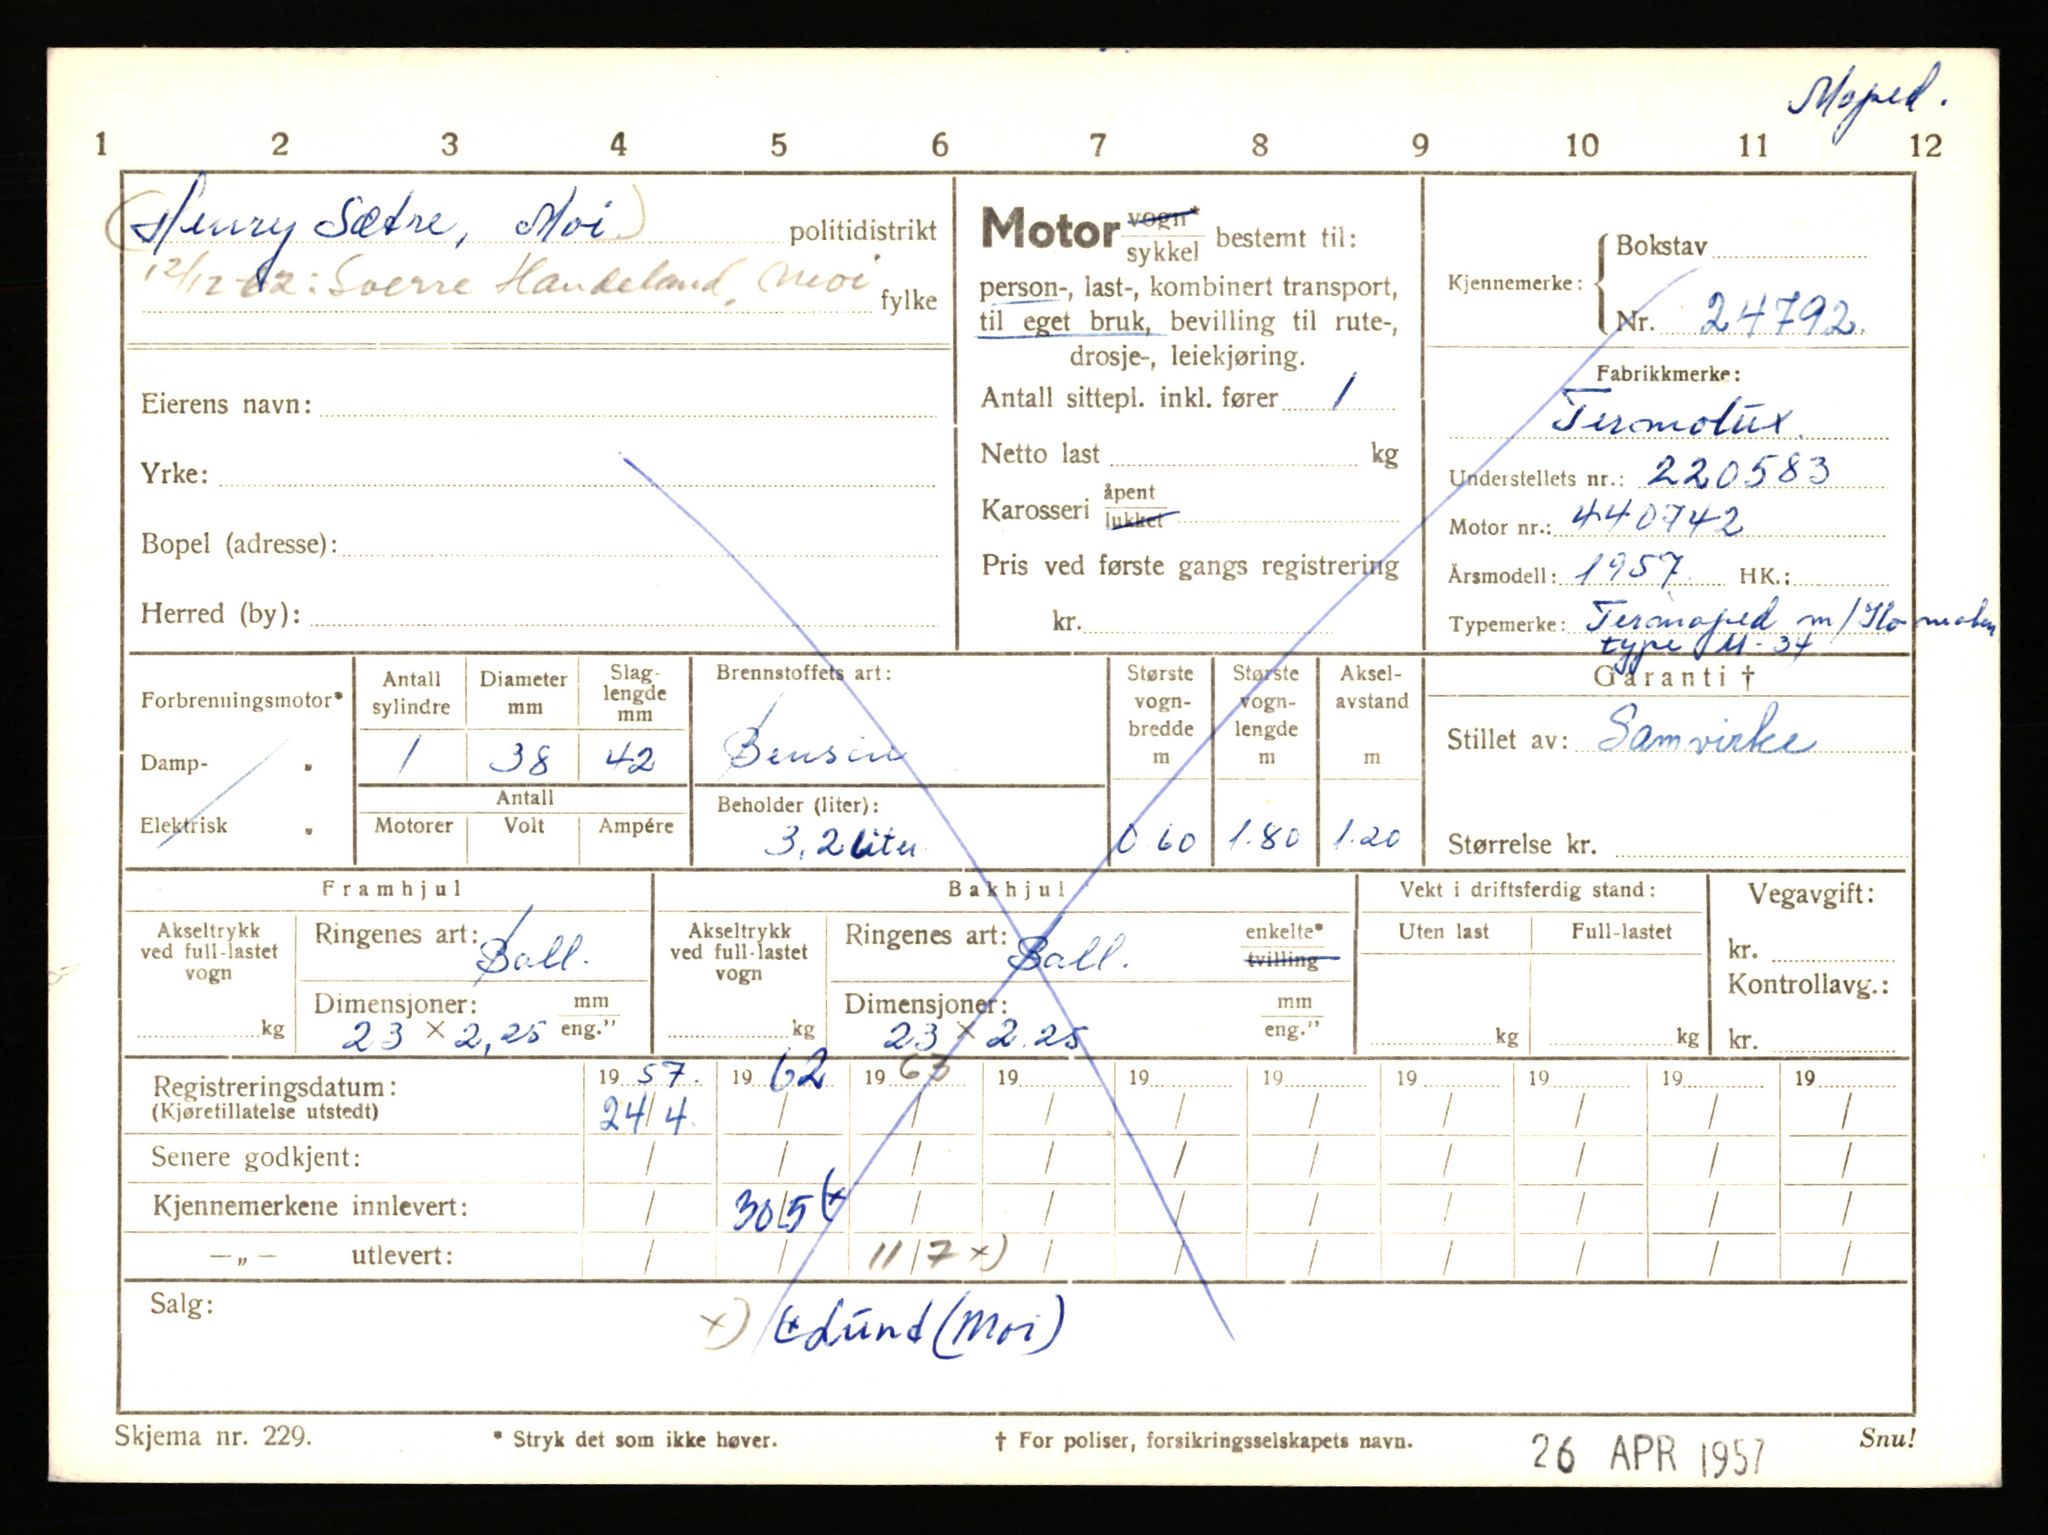 Moped.
1 2 3 4 5 6 7 8 9 10 11 12
(Henry Sætre, Moi.) politidistrikt
12/12-62: Sverre Handeland, Moi fylke
Eierens navn:
Yrke:
Bopel (adresse):
Herred (by):
Motor vogn* / sykkel bestemt til:
person-, last-, kombinert transport,
til eget bruk, bevilling til rute-,
drosje-, leiekjøring.
Antall sittepl. inkl. fører 1
Netto last kg
Karosseri åpent / lukket
Pris ved første gangs registrering
kr.
Kjennemerke: Bokstav
Nr. 24792.
Fabrikkmerke:
Termolux.
Understellets nr.: 220583
Motor nr.: 440742
Årsmodell: 1957 HK.:
Typemerke: Termoped m/Ilo
type M-34
Forbrenningsmotor*
Damp- "
Elektrisk "
Antall sylindre Diameter mm Slag-lengde mm
1 38 42
Antall
Motorer Volt Ampére
Brennstoffets art:
Bensin
Beholder (liter):
3,2 liter
Største vogn-bredde m
0.60
Største vogn-lengde m
1.80
Aksel-avstand m
1.20
Garanti †
Stillet av: Samvirke
Størrelse kr.
Framhjul
Akseltrykk ved full-lastet vogn
kg
Ringenes art: Ball.
Dimensjoner: mm / eng."
23 × 2,25
Bakhjul
Akseltrykk ved full-lastet vogn
kg
Ringenes art: Ball. enkelte* / tvilling
Dimensjoner: mm / eng."
23 × 2.25
Vekt i driftsferdig stand:
Uten last Full-lastet
kg kg
Vegavgift:
kr.
Kontrollavg.:
kr.
Registreringsdatum: 19 57. 19 62 19 63 19 19 19 19 19 19 19
(Kjøretillatelse utstedt) 24/4. / / / / / / / / /
Senere godkjent: / / / / / / / / / /
Kjennemerkene innlevert: / 30/5 (* / / / / / / / /
—„— utlevert: / / 11/7 ×) / / / / / / /
Salg: ×) (* Lund (Moi)
Skjema nr. 229. * Stryk det som ikke høver. † For poliser, forsikringsselskapets navn. 26 APR 1957 Snu!